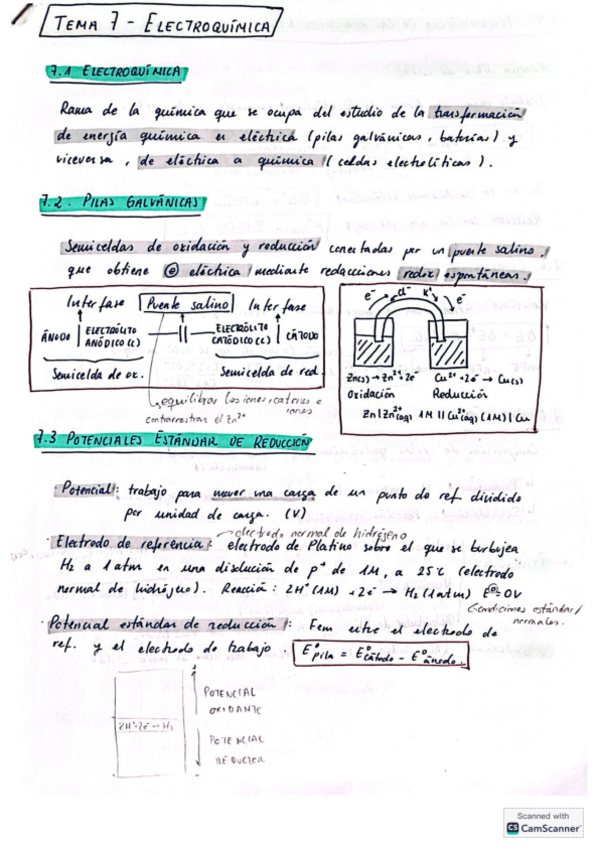 TEMA 7 - ELECTROQUÍMICA
7.1 ELECTROQUÍMICA
Rama de la química que se ocupa del estudio de la transformación
de energía química en eléctrica (pilas galvánicas, baterías) y
viceversa, de eléctrica a química (celdas electrolíticas).
7.2. PILAS GALVÁNICAS
Semiceldas de oxidación y reducción conectadas por un puente salino,
que obtiene eléctrica mediante redacciones redox espontáneas.
Interfase Puente salino Interfase
ÁNODO | ELECTRÓLITO ANÓDICO (c) || ELECTRÓLITO CATÓDICO (c) | CÁTODO
Semicelda de ox. Semicelda de red.
equilibrar los iones, cationes e
iones
contrarrestan el Zn²⁺
e⁻ Cl⁻ K⁺ e⁻
Zn(s) → Zn²⁺ + 2e⁻ Cu²⁺ + 2e⁻ → Cu(s)
Oxidación Reducción
Zn | Zn²⁺(aq) 1M || Cu²⁺(aq) (1M) | Cu
7.3 POTENCIALES ESTÁNDAR DE REDUCCIÓN
· Potencial: trabajo para mover una carga de un punto de ref dividido
por unidad de carga. (V)
electrodo normal de hidrógeno
· Electrodo de referência: electrodo de Platino sobre el que se burbujea
H₂ a 1 atm en una disolución de p⁺ de 1M, a 25°C (electrodo
normal de hidrógeno). Reacción: 2H⁺(1M) + 2e⁻ → H₂ (1 atm) E° = 0V
Condiciones estándar/
normales.
· Potencial estándas de reducción: Fem entre el electrodo de
ref. y el electrodo de trabajo. E°pila = E°cátodo - E°ánodo.
POTENCIAL
OXIDANTE
2H⁺+2e⁻→H₂
POTENCIAL
REDUCTOR
Scanned with
CS CamScanner